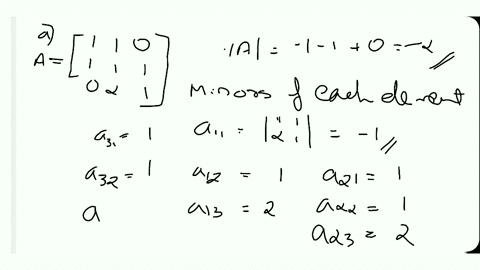 a)
A = [ 1 1 0
1 1 1
0 2 1 ]
|A| = -1 -1 + 0 = -2
Minors of each element
a31 = 1 a11 = | 1 1 2 1 | = -1
a32 = 1 a12 = 1 a21 = 1
a a13 = 2 a22 = 1
a23 = 2